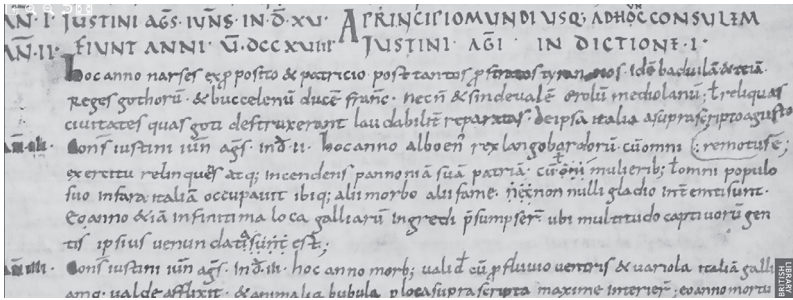 AN· I· IUSTINI AGS· IUNS· IN·D· XV· A PRINCIPIO MUNDI USQ; AD HOC CONSULEM
AN· II· FIUNT ANNI· V̄·DCCXVIIII· IUSTINI· AGI· IN DICTIONE· I·
hoc anno narses exp̄posito & patricio· post tantos prostratos tyrannos· idē baduilā & teiā·
Reges gothorū· & buccelenū ducē franc· necn̄ & sindevalē erolū mediolanū; ł reliquas
civitates quas goti destruxerant laudabilit̄ reparatas· de ipsa italia a suprascripto agusto
Cons iustini iun̄ aḡs· ind̄· II· hoc anno alboen rex langobardorū cū omni remotus ē;
exercitu relinquēs atq; incendens pannoniā suā patriā· cū omni mulierib; ł omni populo
suo in fara italiā occupavit ibiq; alii morbo alii fame· nec non nulli gladio int̄empti sunt·
Eo anno & iā in finitima loca galliarū ingredi p̄sumpser̄ ubi multitudo captivorū gen
tis ipsius venundati sunt est;
Cons iustini iun̄ aḡs· ind̄· III· hoc anno morb; valid cū p̄fluvio ventris & variola italiā galli
amq· valde afflixit· & animalia bubula p loca suprascripta maxime interier· eo anno mortu
BRITISH LIBRARY